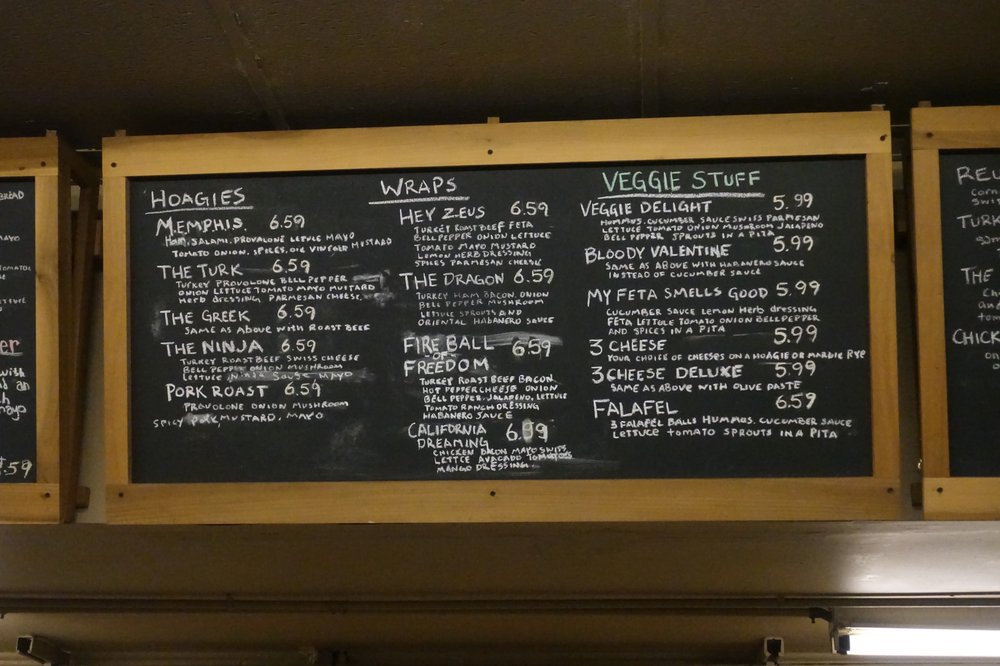 HOAGIES
MEMPHIS 6.59
HAM, SALAMI, PROVALONE LETUCE MAYO
TOMATO ONION, SPICES, OIL VINEGAR MUSTARD
THE TURK 6.59
TURKEY PROVOLONE BELL PEPPER
ONION LETTUCE TOMATO MAYO MUSTARD
Herb DRESSING PARMESAN CHEESE
THE GREEK 6.59
SAME AS ABOVE WITH ROAST BEEF
THE NINJA 6.59
TURKEY ROAST BEEF SWISS CHEESE
BELL PEPPER ONION MUSHROOM
LETTUCE NINJA SAUCE MAYO
PORK ROAST 6.59
PROVOLONE ONION MUSHROOM
SPICY PORK MUSTARD, MAYO
WRAPS
HEY Z-EUS 6.59
TURKEY ROAST BEEF FETA
BELL PEPPER ONION LETTUCE
TOMATO MAYO MUSTARD
LEMON HERB DRESSING
SPICES PARMESAN CHEESE
THE DRAGON 6.59
TURKEY HAM BACON ONION
BELL PEPPER MUSHROOM
LETTUCE SPROUTS AND
ORIENTAL HABANERO SAUCE
FIRE BALL 6.59
OF
FREEDOM
TURKEY ROAST BEEF BACON
HOT PEPPER CHEESE ONION
BELL PEPPER, JALAPENO, LETTUCE
TOMATO RANCH DRESSING
HABANERO SAUCE
CALIFORNIA 6.99
DREAMING
CHICKEN BACON MAYO SWISS
LETTCE AVACADO TOMATOES
MANGO DRESSING
VEGGIE STUFF
VEGGIE DELIGHT 5.99
HUMMUS, CUCUMBER SAUCE SWISS PARMESAN
LETTUCE TOMATO ONION MUSHROOM JALAPENO
BELL PEPPER SPROUTS IN A PITA
BLOODY VALENTINE 5.99
SAME AS ABOVE WITH HABANERO SAUCE
INSTEAD OF CUCUMBER SAUCE
MY FETA SMELLS GOOD 5.99
CUCUMBER SAUCE LEMON Herb DRESSING
FETA LETTUCE TOMATO ONION BELL PEPPER
AND SPICES IN A PITA
3 CHEESE 5.99
YOUR CHOICE OF CHEESES ON A HOAGIE OR MARBLE RYE
3 CHEESE DELUXE 5.99
SAME AS ABOVE WITH OLIVE PASTE
FALAFEL 6.59
3 FALAFEL BALLS HUMMUS, CUCUMBER SAUCE
LETTUCE TOMATO SPROUTS IN A PITA
BREAD
MAYO
.59
TURK
THE
CHICK